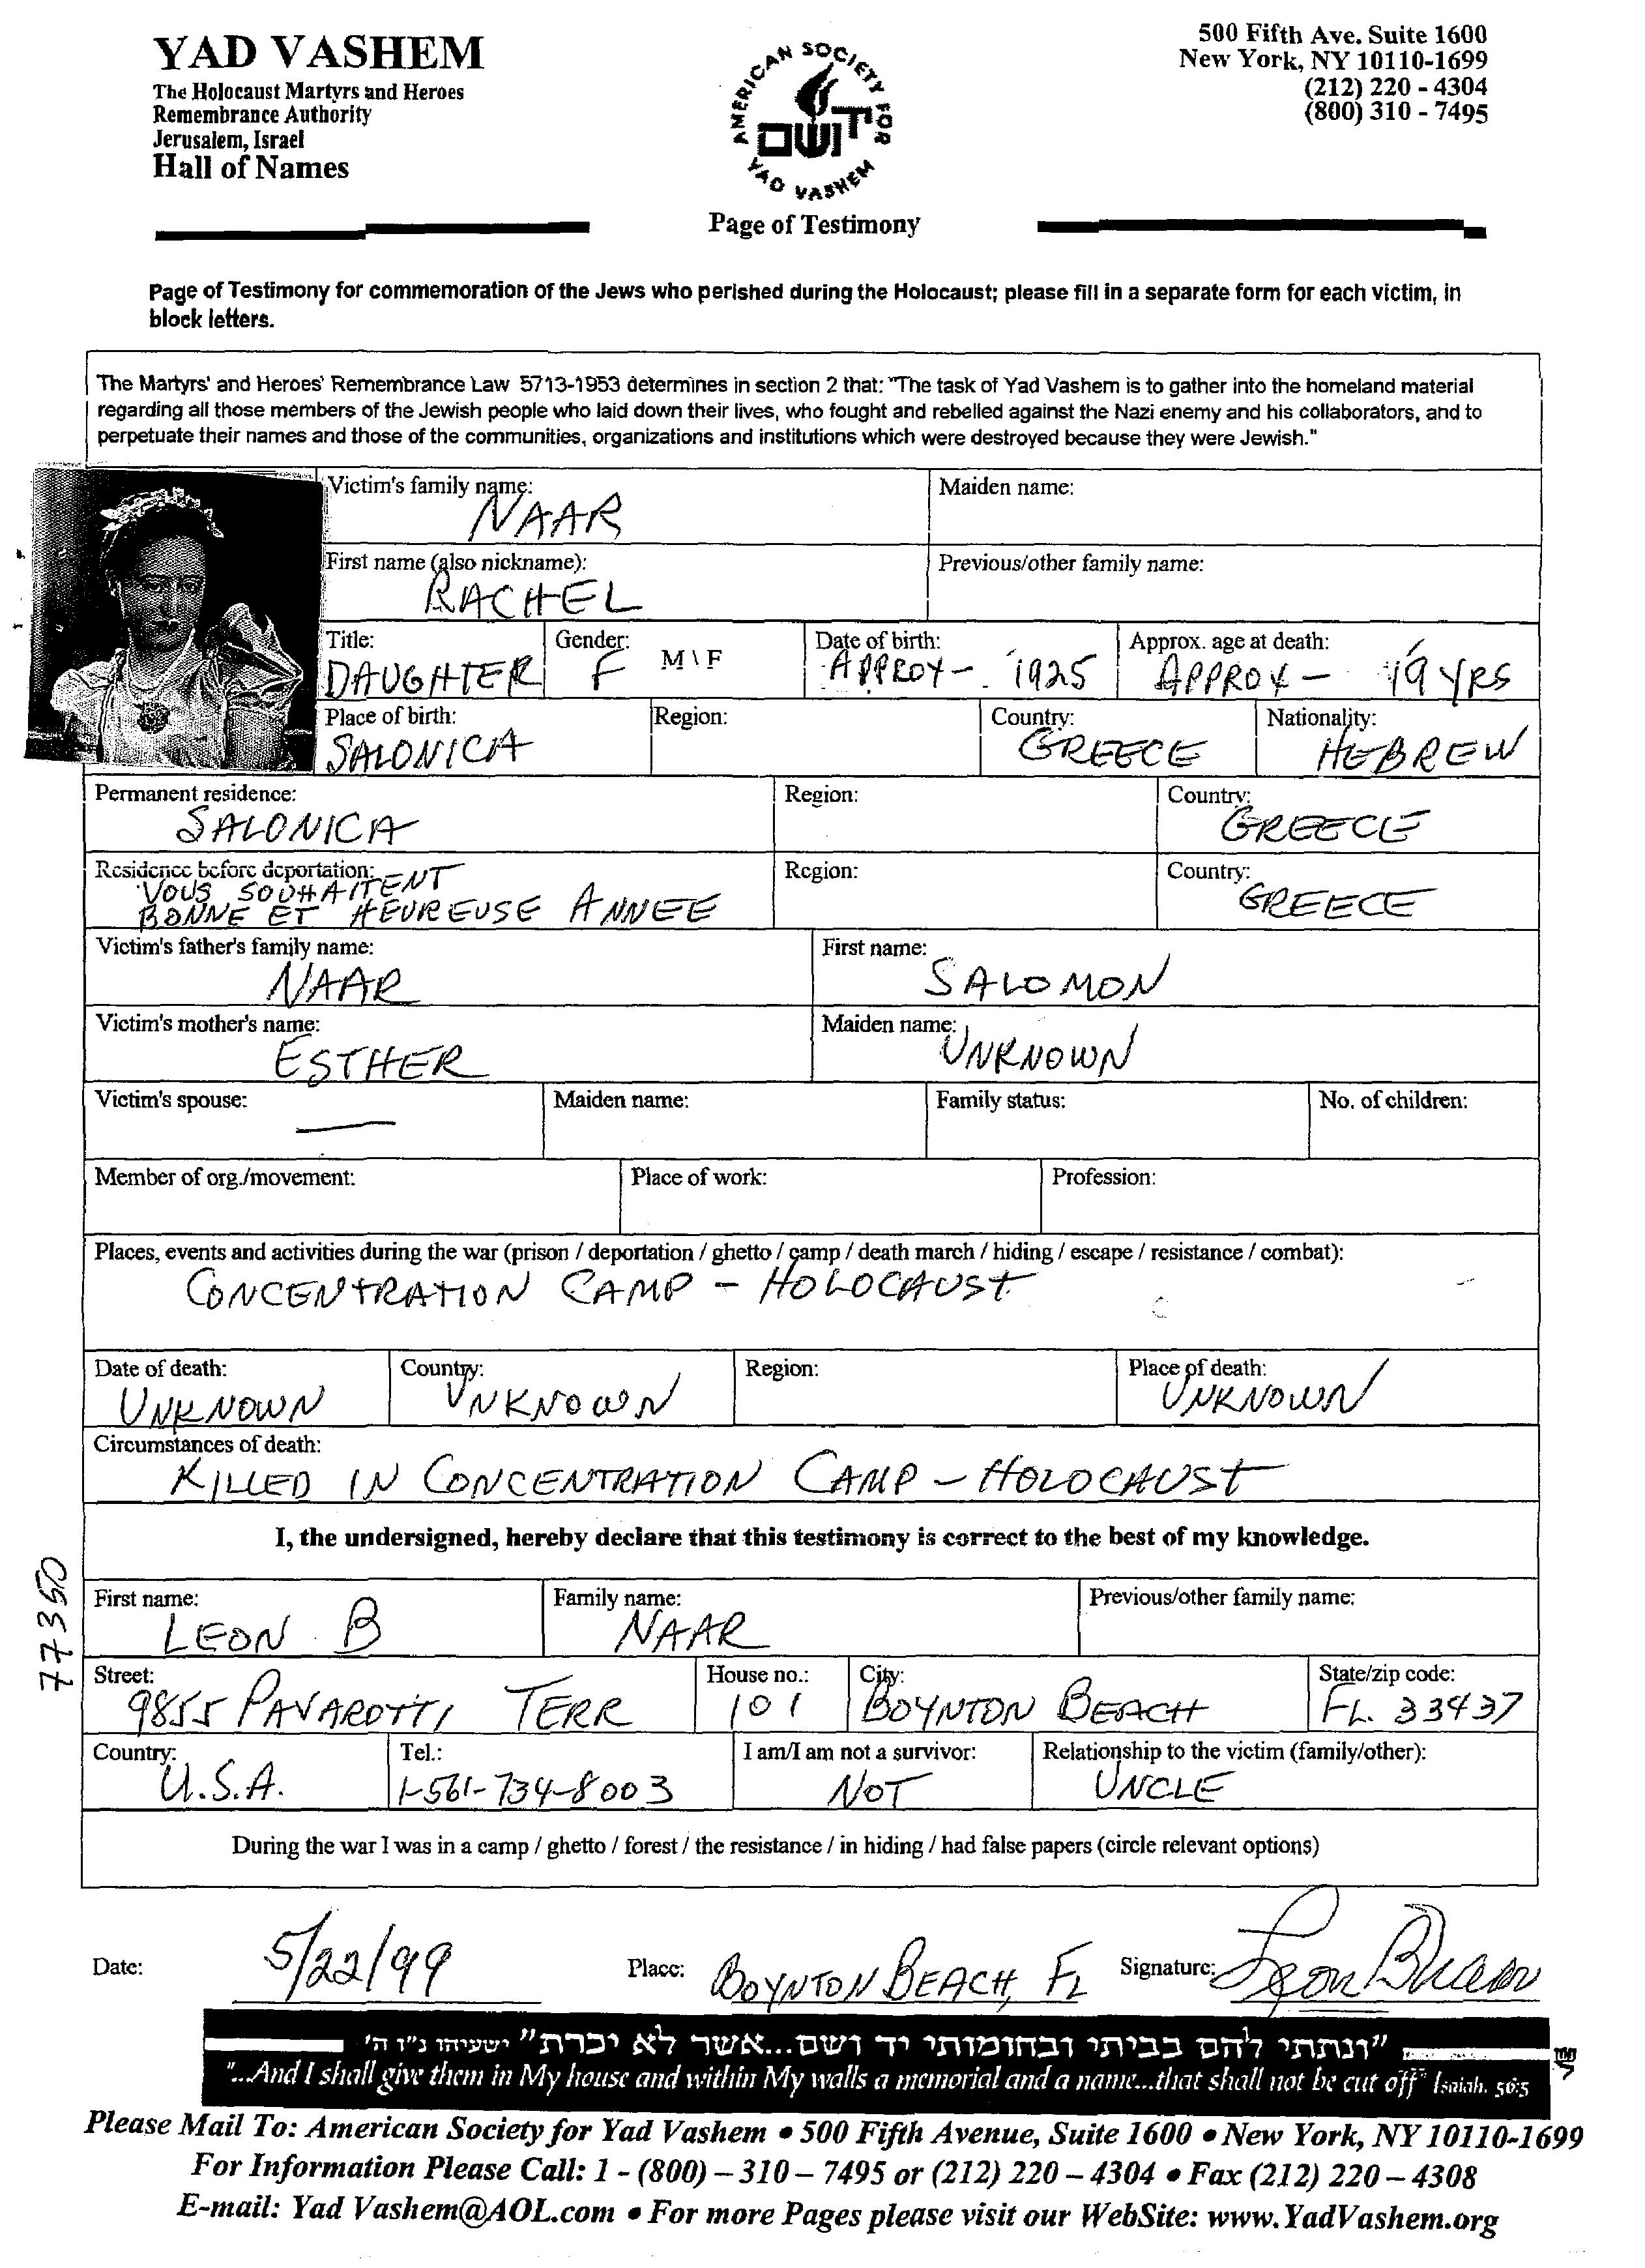 YAD VASHEM
The Holocaust Martyrs and Heroes
Remembrance Authority
Jerusalem, Israel
Hall of Names
AMERICAN SOCIETY FOR
יד ושם
YAD VASHEM
Page of Testimony
500 Fifth Ave. Suite 1600
New York, NY 10110-1699
(212) 220 - 4304
(800) 310 - 7495
Page of Testimony for commemoration of the Jews who perished during the Holocaust; please fill in a separate form for each victim, in
block letters.
The Martyrs' and Heroes' Remembrance Law 5713-1953 determines in section 2 that: "The task of Yad Vashem is to gather into the homeland material
regarding all those members of the Jewish people who laid down their lives, who fought and rebelled against the Nazi enemy and his collaborators, and to
perpetuate their names and those of the communities, organizations and institutions which were destroyed because they were Jewish."
Victim's family name: Maiden name:
NAAR
First name (also nickname): Previous/other family name:
RACHEL
Title: Gender: M\F Date of birth: Approx. age at death:
DAUGHTER F APPROX - 1925 APPROX - 19 YRS
Place of birth: Region: Country: Nationality:
SALONICA GREECE HEBREW
Permanent residence: Region: Country:
SALONICA GREECE
Residence before deportation: Region: Country:
VOUS SOUHAITENT
BONNE ET HEUREUSE ANNEE GREECE
Victim's father's family name: First name:
NAAR SALOMON
Victim's mother's name: Maiden name:
ESTHER UNKNOWN
Victim's spouse: Maiden name: Family status: No. of children:
—
Member of org./movement: Place of work: Profession:
Places, events and activities during the war (prison / deportation / ghetto / camp / death march / hiding / escape / resistance / combat):
CONCENTRATION CAMP - HOLOCAUST
Date of death: Country: Region: Place of death:
UNKNOWN UNKNOWN UNKNOWN
Circumstances of death:
KILLED IN CONCENTRATION CAMP - HOLOCAUST
I, the undersigned, hereby declare that this testimony is correct to the best of my knowledge.
77350
First name: Family name: Previous/other family name:
LEON B NAAR
Street: House no.: City: State/zip code:
9855 PAVAROTTI TERR 101 BOYNTON BEACH FL. 33437
Country: Tel.: I am/I am not a survivor: Relationship to the victim (family/other):
U.S.A. 1-561-734-8003 NOT UNCLE
During the war I was in a camp / ghetto / forest / the resistance / in hiding / had false papers (circle relevant options)
Date: 5/22/99 Place: BOYNTON BEACH, FL Signature: Leon B Naar
"ונתתי להם בביתי ובחומותי יד ושם...אשר לא יכרת" ישעיהו נ"ו ה'
"...And I shall give them in My house and within My walls a memorial and a name...that shall not be cut off" Isaiah. 56:5
Please Mail To: American Society for Yad Vashem • 500 Fifth Avenue, Suite 1600 • New York, NY 10110-1699
For Information Please Call: 1 - (800) – 310 – 7495 or (212) 220 – 4304 • Fax (212) 220 – 4308
E-mail: Yad Vashem@AOL.com • For more Pages please visit our WebSite: www.YadVashem.org